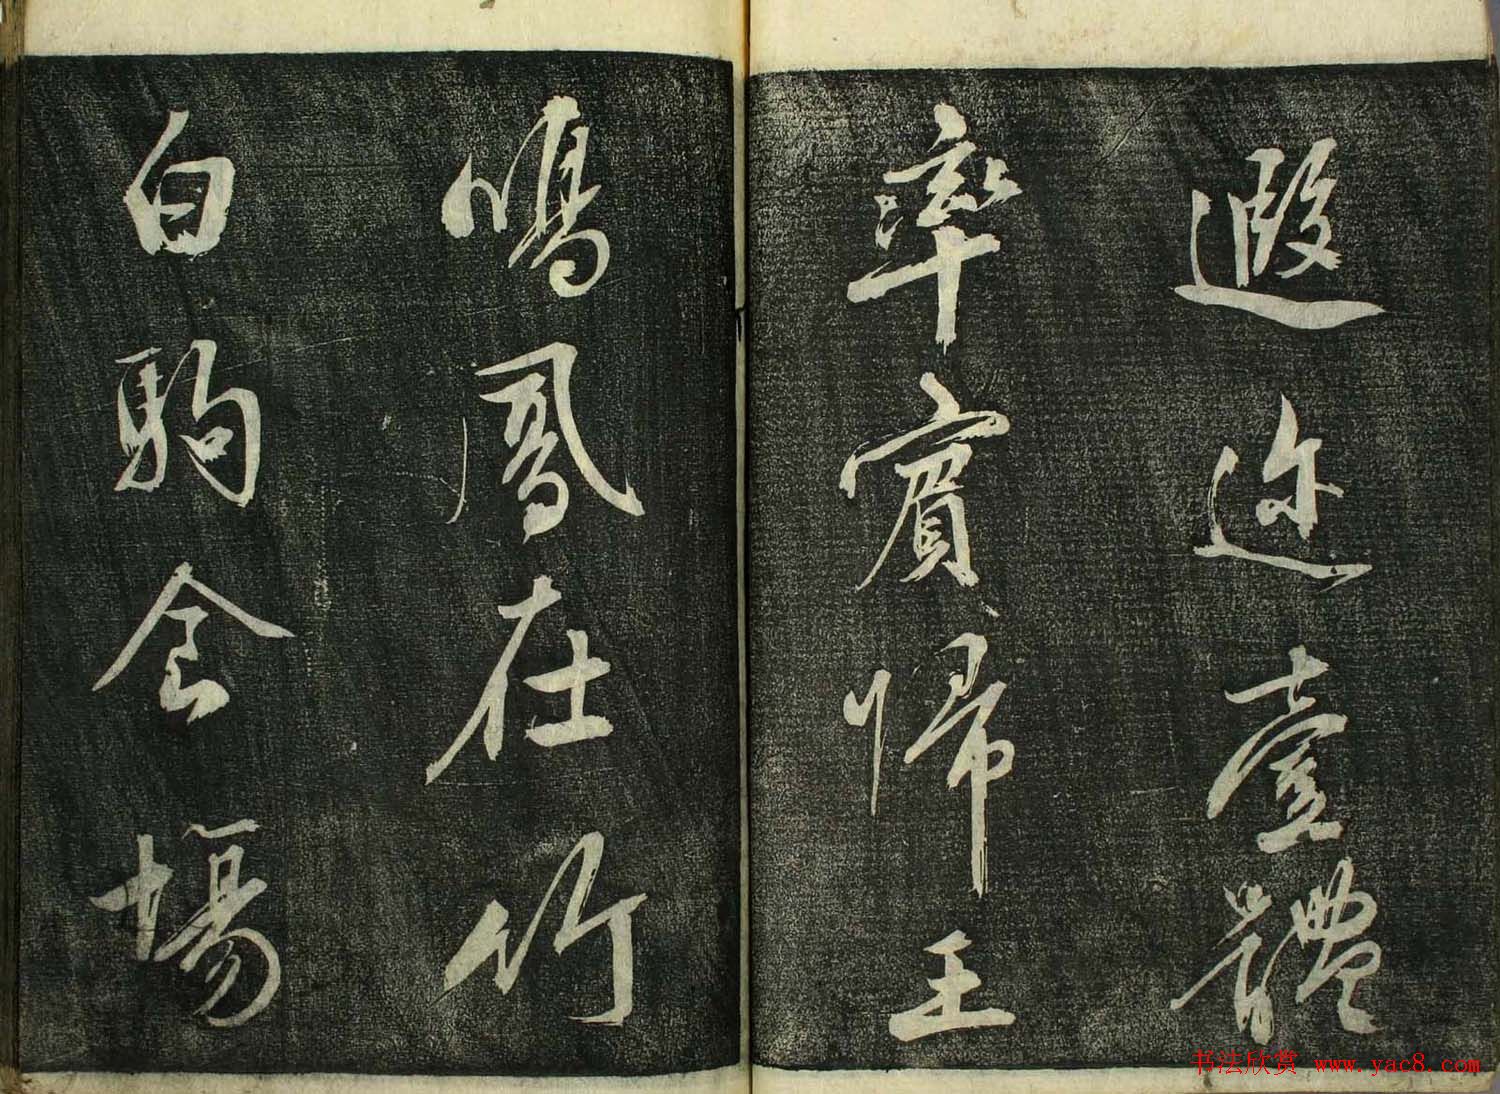 遐迩壹體
率賓歸王
鳴鳳在竹
白駒食場
书法欣赏 www.yac8.com